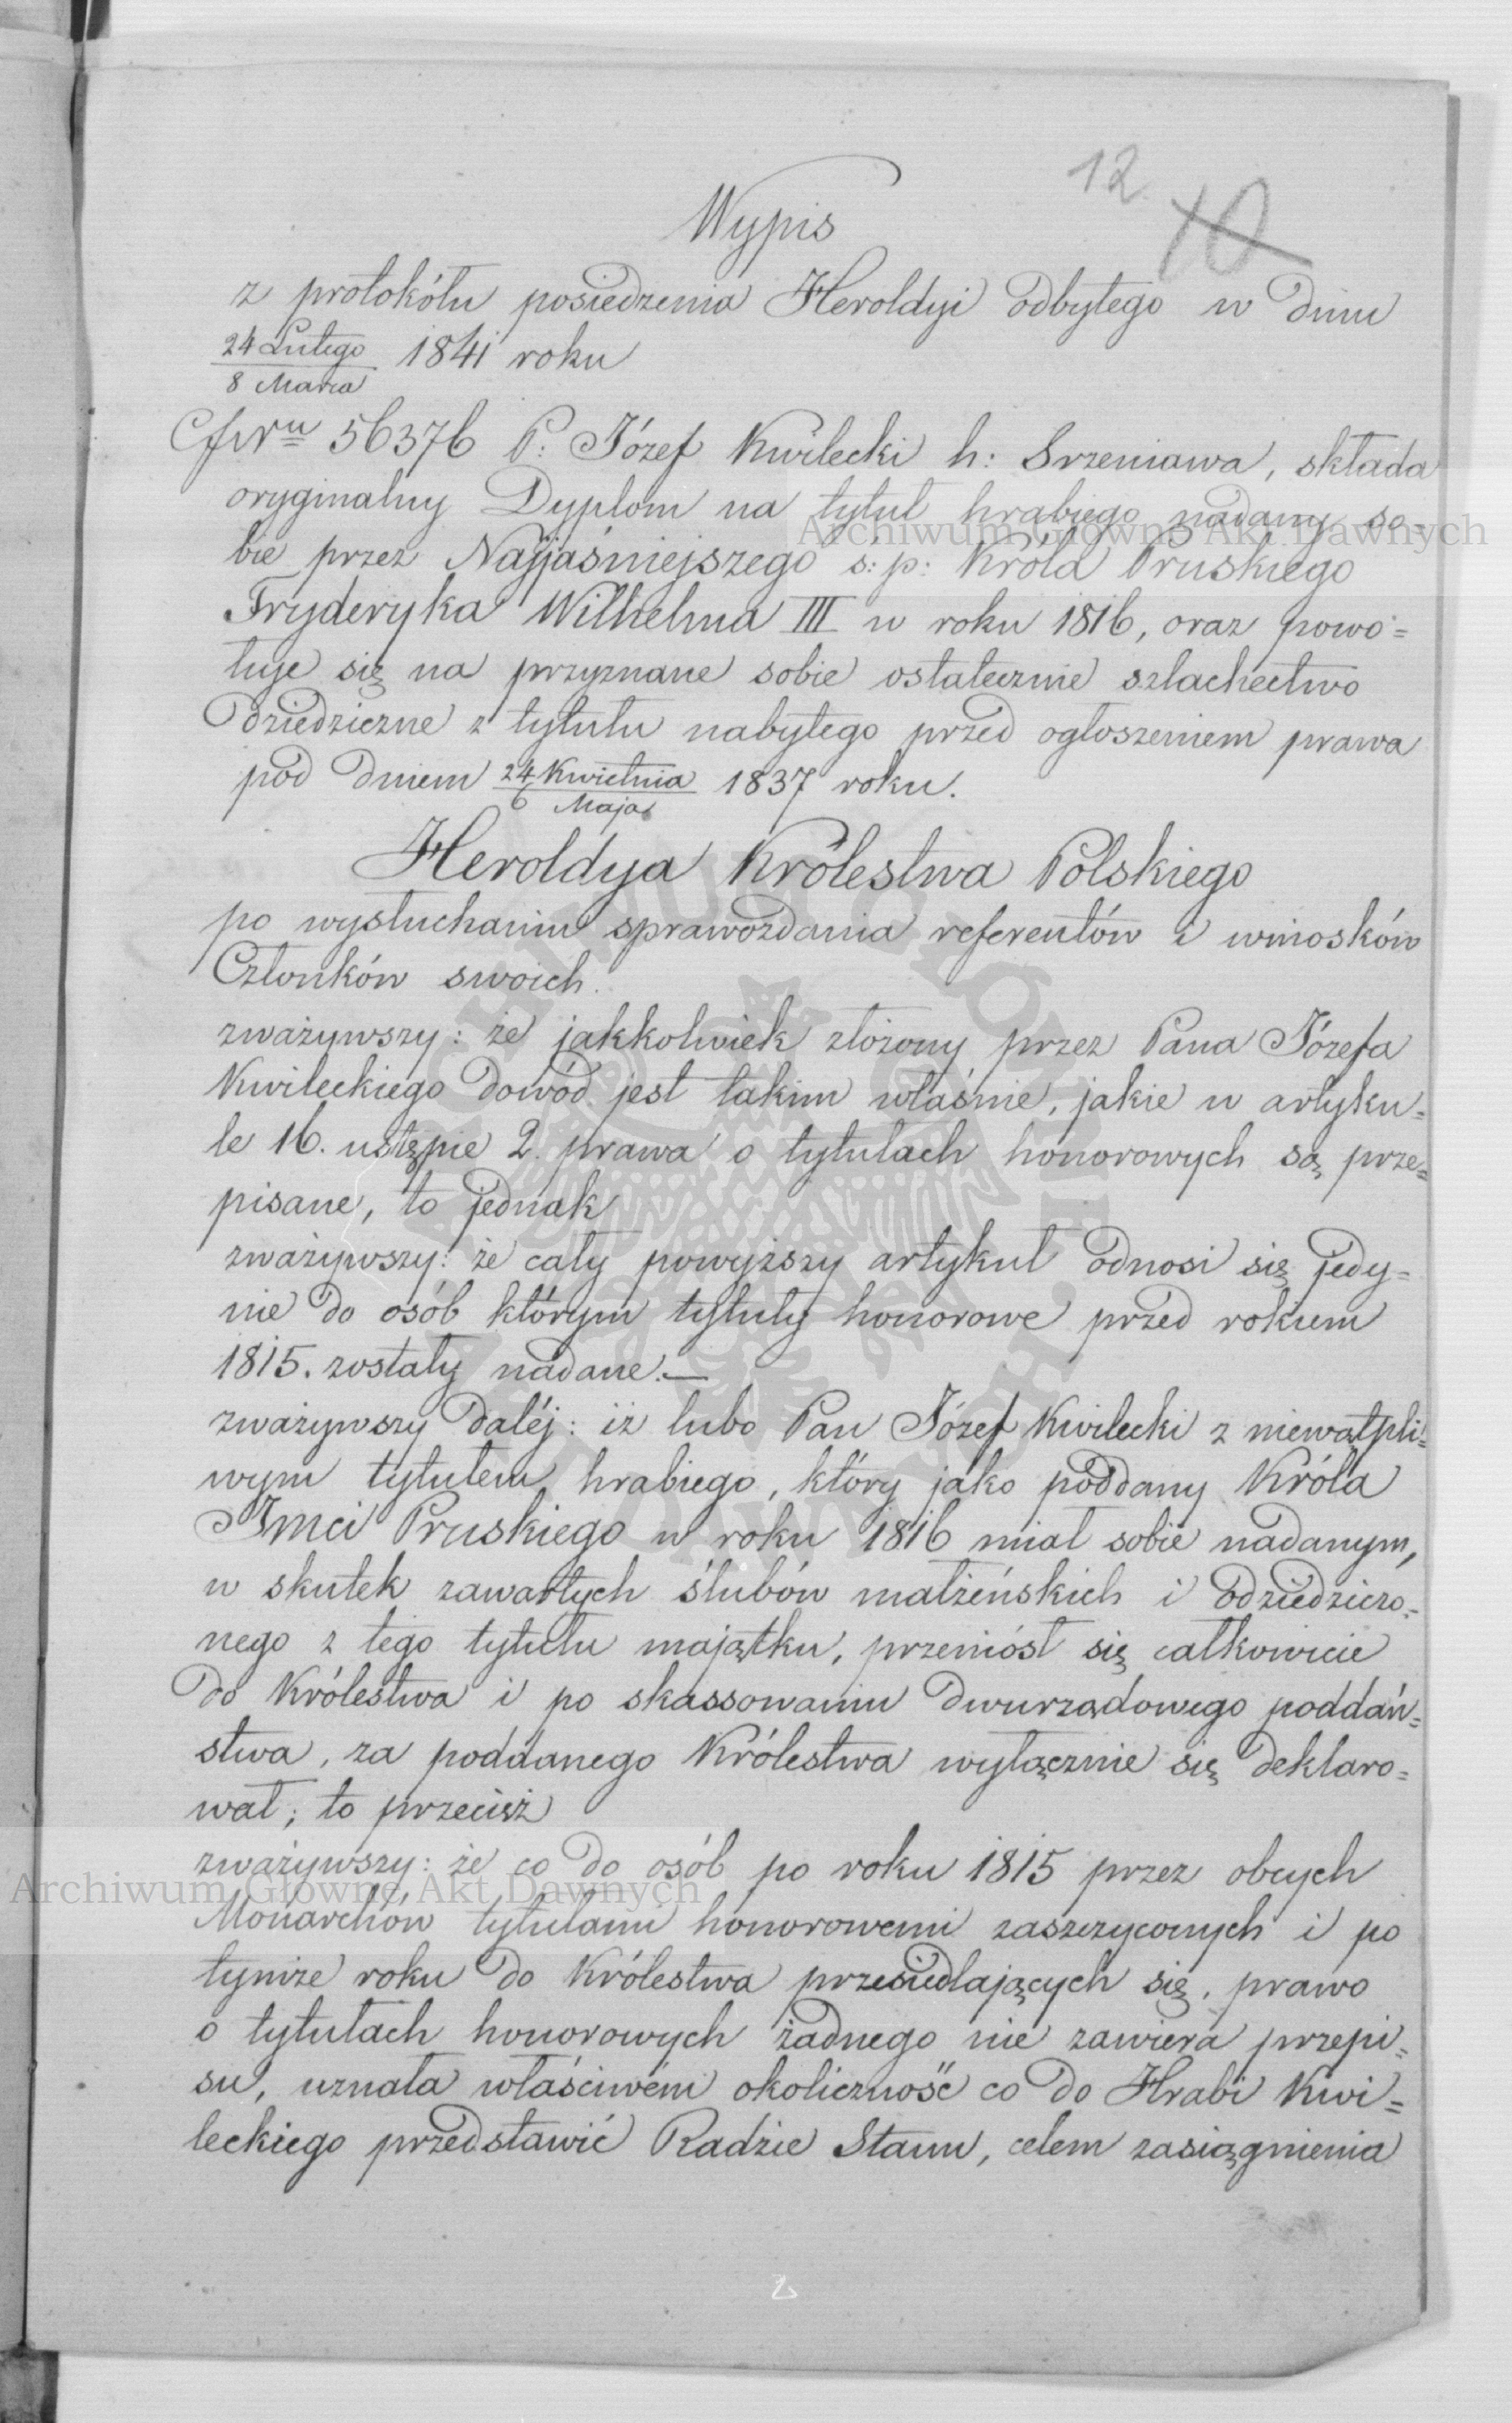 12
10
Wypis
z protokółu posiedzenia Heroldyi odbytego w dniu
24 Lutego
8 Marca
1841 roku
56376 P: Józef Kwilecki h: Srzeniawa, składa
oryginalny Dyplom na tytuł hrabiego nadany so=
bie przez Najjaśniejszego ś: p: Króla Pruskiego
Fryderyka Wilhelma III w roku 1816, oraz powo=
łuje się na przyznane sobie ostatecznie szlachectwo
dziedziczne z tytułu nabytego przed ogłoszeniem prawa
pod dniem 24 Kwietnia
6 Maja
1837 roku.
Heroldya Królestwa Polskiego
po wysłuchaniu sprawozdania referentów i wniosków
Członków swoich.
zważywszy: że jakkolwiek złożony przez Pana Józefa
Kwileckiego dowód jest takim właśnie, jakie w artyku=
le 16. ustępie 2. prawa o tytułach honorowych są prze=
pisane, to jednak
zważywszy: że cały powyższy artykuł odnosi się jedy=
nie do osób którym tytuły honorowe przed rokiem
1815. zostały nadane.—
zważywszy daléj: iż lubo Pan Józef Kwilecki z niewątpli=
wym tytułem hrabiego, który jako poddany Króla
Jmci Pruskiego w roku 1816 miał sobie nadanym,
w skutek zawartych ślubów małżeńskich i odziedziczo=
nego z tego tytułu majątku, przeniósł się całkowicie
do Królestwa i po skassowaniu dwurządowego poddań=
stwa, za poddanego Królestwa wyłącznie się deklaro=
wał; to przecież
zważywszy: że co do osób po roku 1815 przez obcych
Monarchów tytułami honorowemi zaszczyconych i po
tymże roku do Królestwa przesiedlających się, prawo
o tytułach honorowych żadnego nie zawiera przepi=
su, uznała właściwém okoliczność co do Hrabi Kwi=
leckiego przedstawić Radzie Stanu, celem zasiągnienia
2
Archiwum Główne Akt Dawnych
Archiwum Główne Akt Dawnych
ARCHIWUM GŁÓWNE AKT DAWNYCH